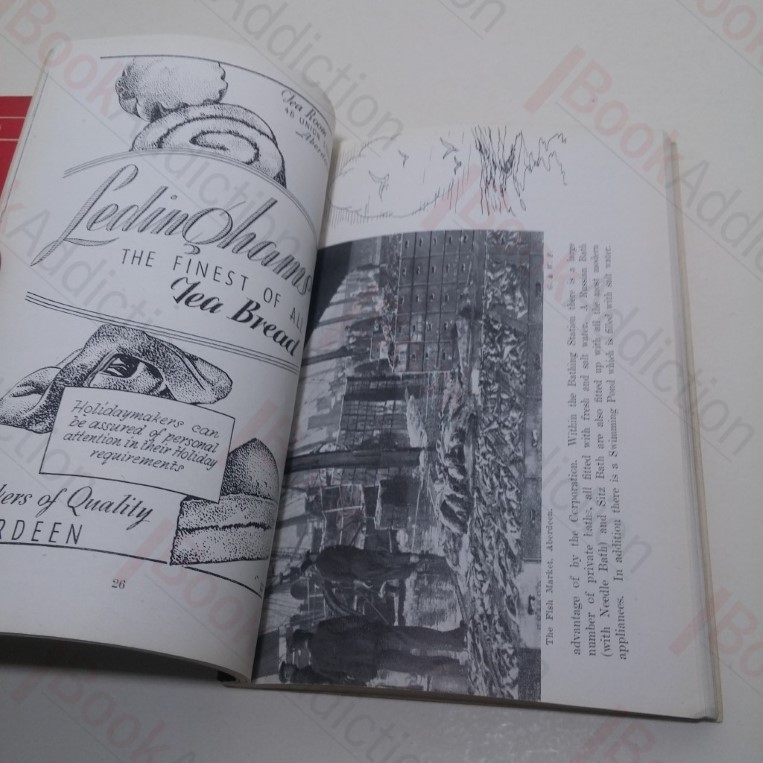 Tea Room
40 UNION
Ledinghams
THE FINEST OF ALL
Tea Bread
Holidaymakers can
be assured of personal
attention in their Holiday
requirements
of Quality
26
The Fish Market, Aberdeen.
advantage of by the Corporation. Within the Bathing Station there is a large
number of private baths, all fitted with fresh and salt water. A Russian Bath
(with Needle Bath) and Sitz Bath are also fitted up with all the most modern
appliances. In addition there is a Swimming Pond which is filled with salt water.
BookAddiction